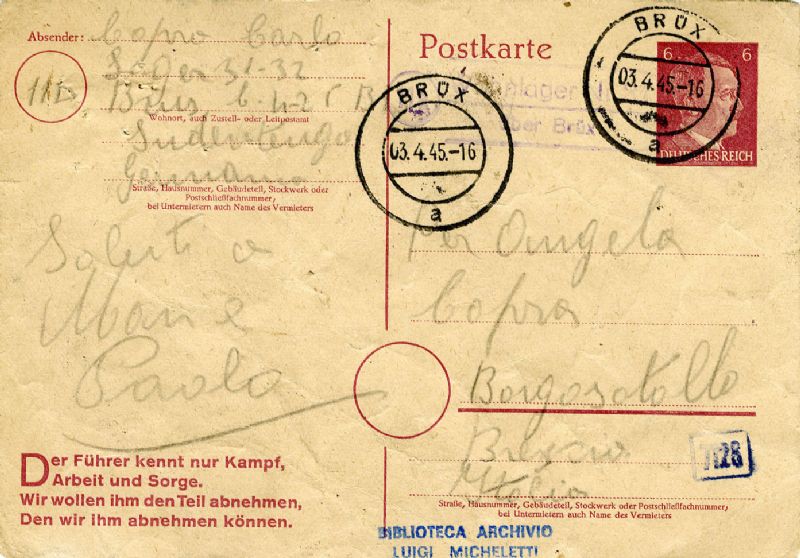 Absender: Copra Carlo
11b
Brüx
Wohnort, auch Zustell- oder Leitpostamt
Germania
Straße, Hausnummer, Gebäudeteil, Stockwerk oder
Postschließfachnummer;
bei Untermietern auch Name des Vermieters
Saluti a
Paolo
Der Führer kennt nur Kampf,
Arbeit und Sorge.
Wir wollen ihm den Teil abnehmen,
Den wir ihm abnehmen können.
Postkarte
über Brüx
BRÜX
03.4.45.-16
a
BRÜX
03.4.45.-16
a
6 6
DEUTSCHES REICH
Per Angela
Copra
Borgosatollo
Brescia
Italia
7128
Straße, Hausnummer, Gebäudeteil, Stockwerk oder Postschließfachnummer;
bei Untermietern auch Name des Vermieters
BIBLIOTECA ARCHIVIO
LUIGI MICHELETTI